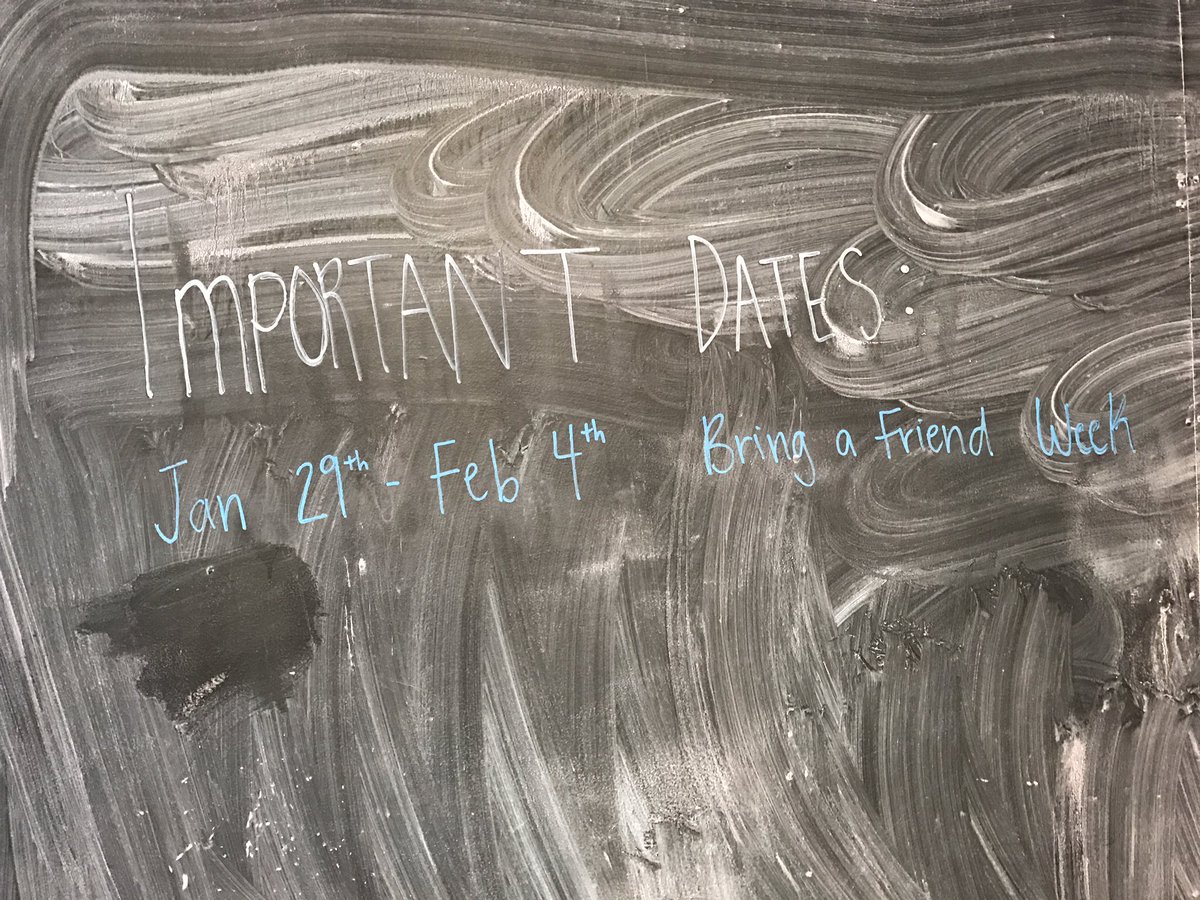 IMPORTANT DATES:
Jan 29th - Feb 4th Bring a Friend Week